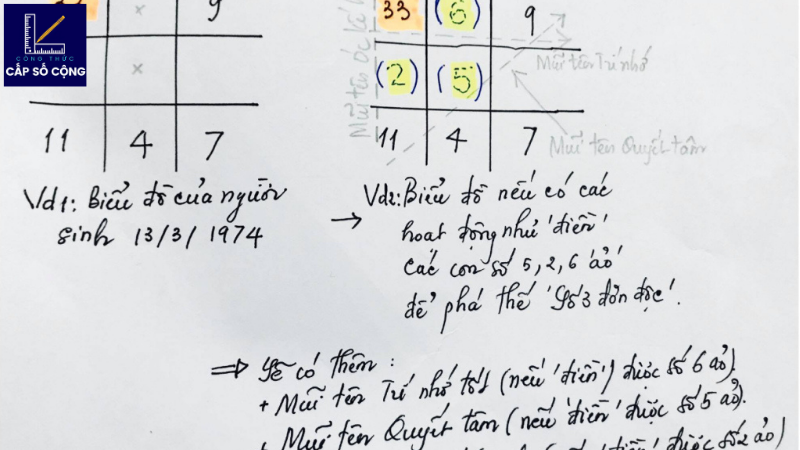 CÔNG THỨC
CẤP SỐ CỘNG
× 9
×
11 4 7
33 (6) 9
(2) (5)
11 4 7
Mũi tên Trí nhớ
Mũi tên Quyết tâm
Mũi tên óc kế
Vd1: Biểu đồ của người
sinh 13/3/1974
→ Vd2: Biểu đồ nếu có các
hoạt động như 'điền'
các con số 5, 2, 6 'ảo'
để phá thế 'Số 3 đơn độc'.
⇒ Sẽ có thêm:
+ Mũi tên Trí nhớ tốt (nếu 'điền') được số 6 ảo).
+ Mũi tên Quyết tâm (nếu 'điền' được số 5 ảo).
(nếu 'điền' được số 2 ảo)